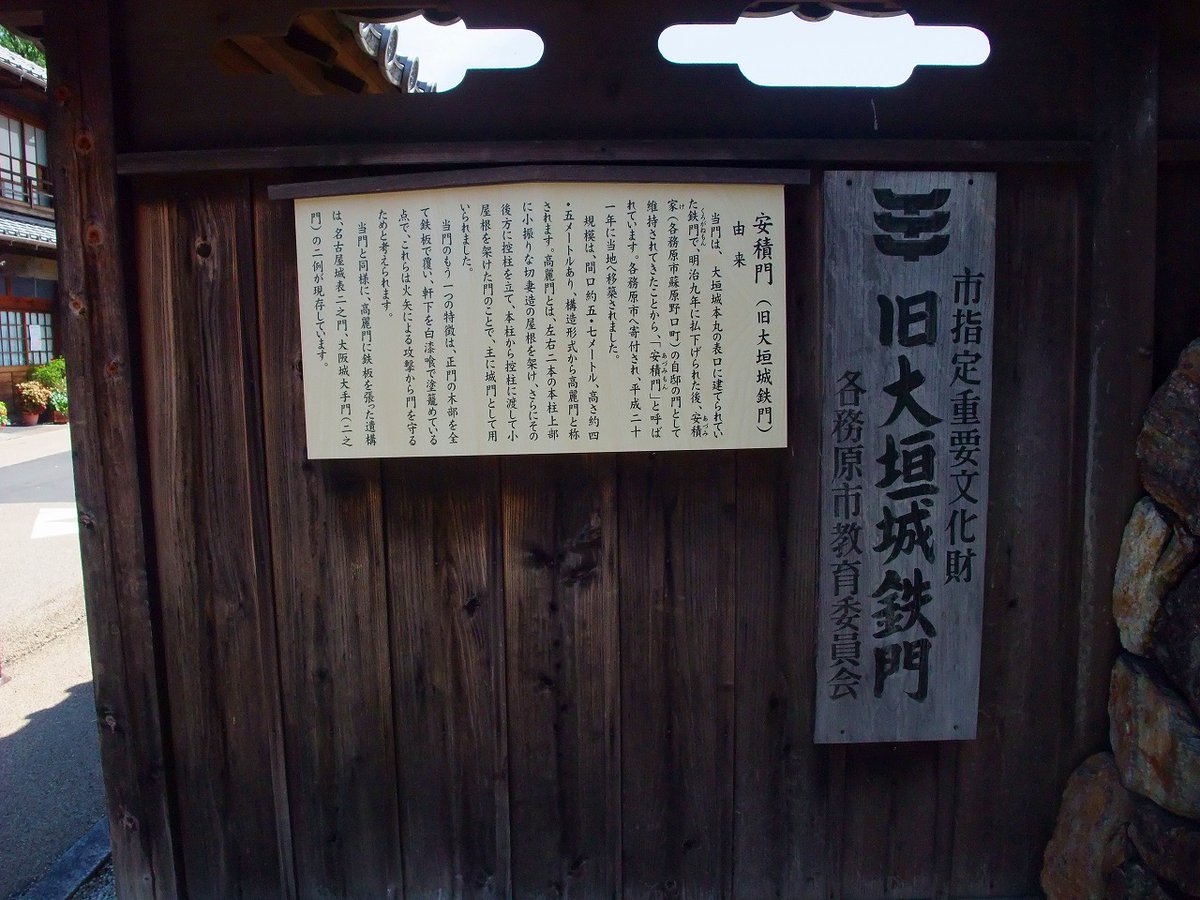 市指定重要文化財
旧大垣城鉄門
各務原市教育委員会
安積門(旧大垣城鉄門)
由来
当門は、大垣城本丸の表口に建てられてい
た鉄門で、明治九年に払下げられた後、安積
くろがねもん
あづみ
家(各務原市蘇原野口町)の自邸の門として
け
維持されてきたことから、「安積門」と呼ば
あづみもん
れています。各務原市へ寄付され、平成二十
一年に当地へ移築されました。
規模は、間口約五・七メートル、高さ約四
・五メートルあり、構造形式から高麗門と称
されます。高麗門とは、左右二本の本柱上部
に小振りな切妻造の屋根を架け、さらにその
後方に控柱を立て、本柱から控柱に渡して小
屋根を架けた門のことで、主に城門として用
いられました。
当門のもう一つの特徴は、正門の木部を全
て鉄板で覆い、軒下を白漆喰で塗籠めている
点で、これらは火矢による攻撃から門を守る
ためと考えられます。
当門と同様に、高麗門に鉄板を張った遺構
は、名古屋城表二之門、大阪城大手門(二之
門)の二例が現存しています。